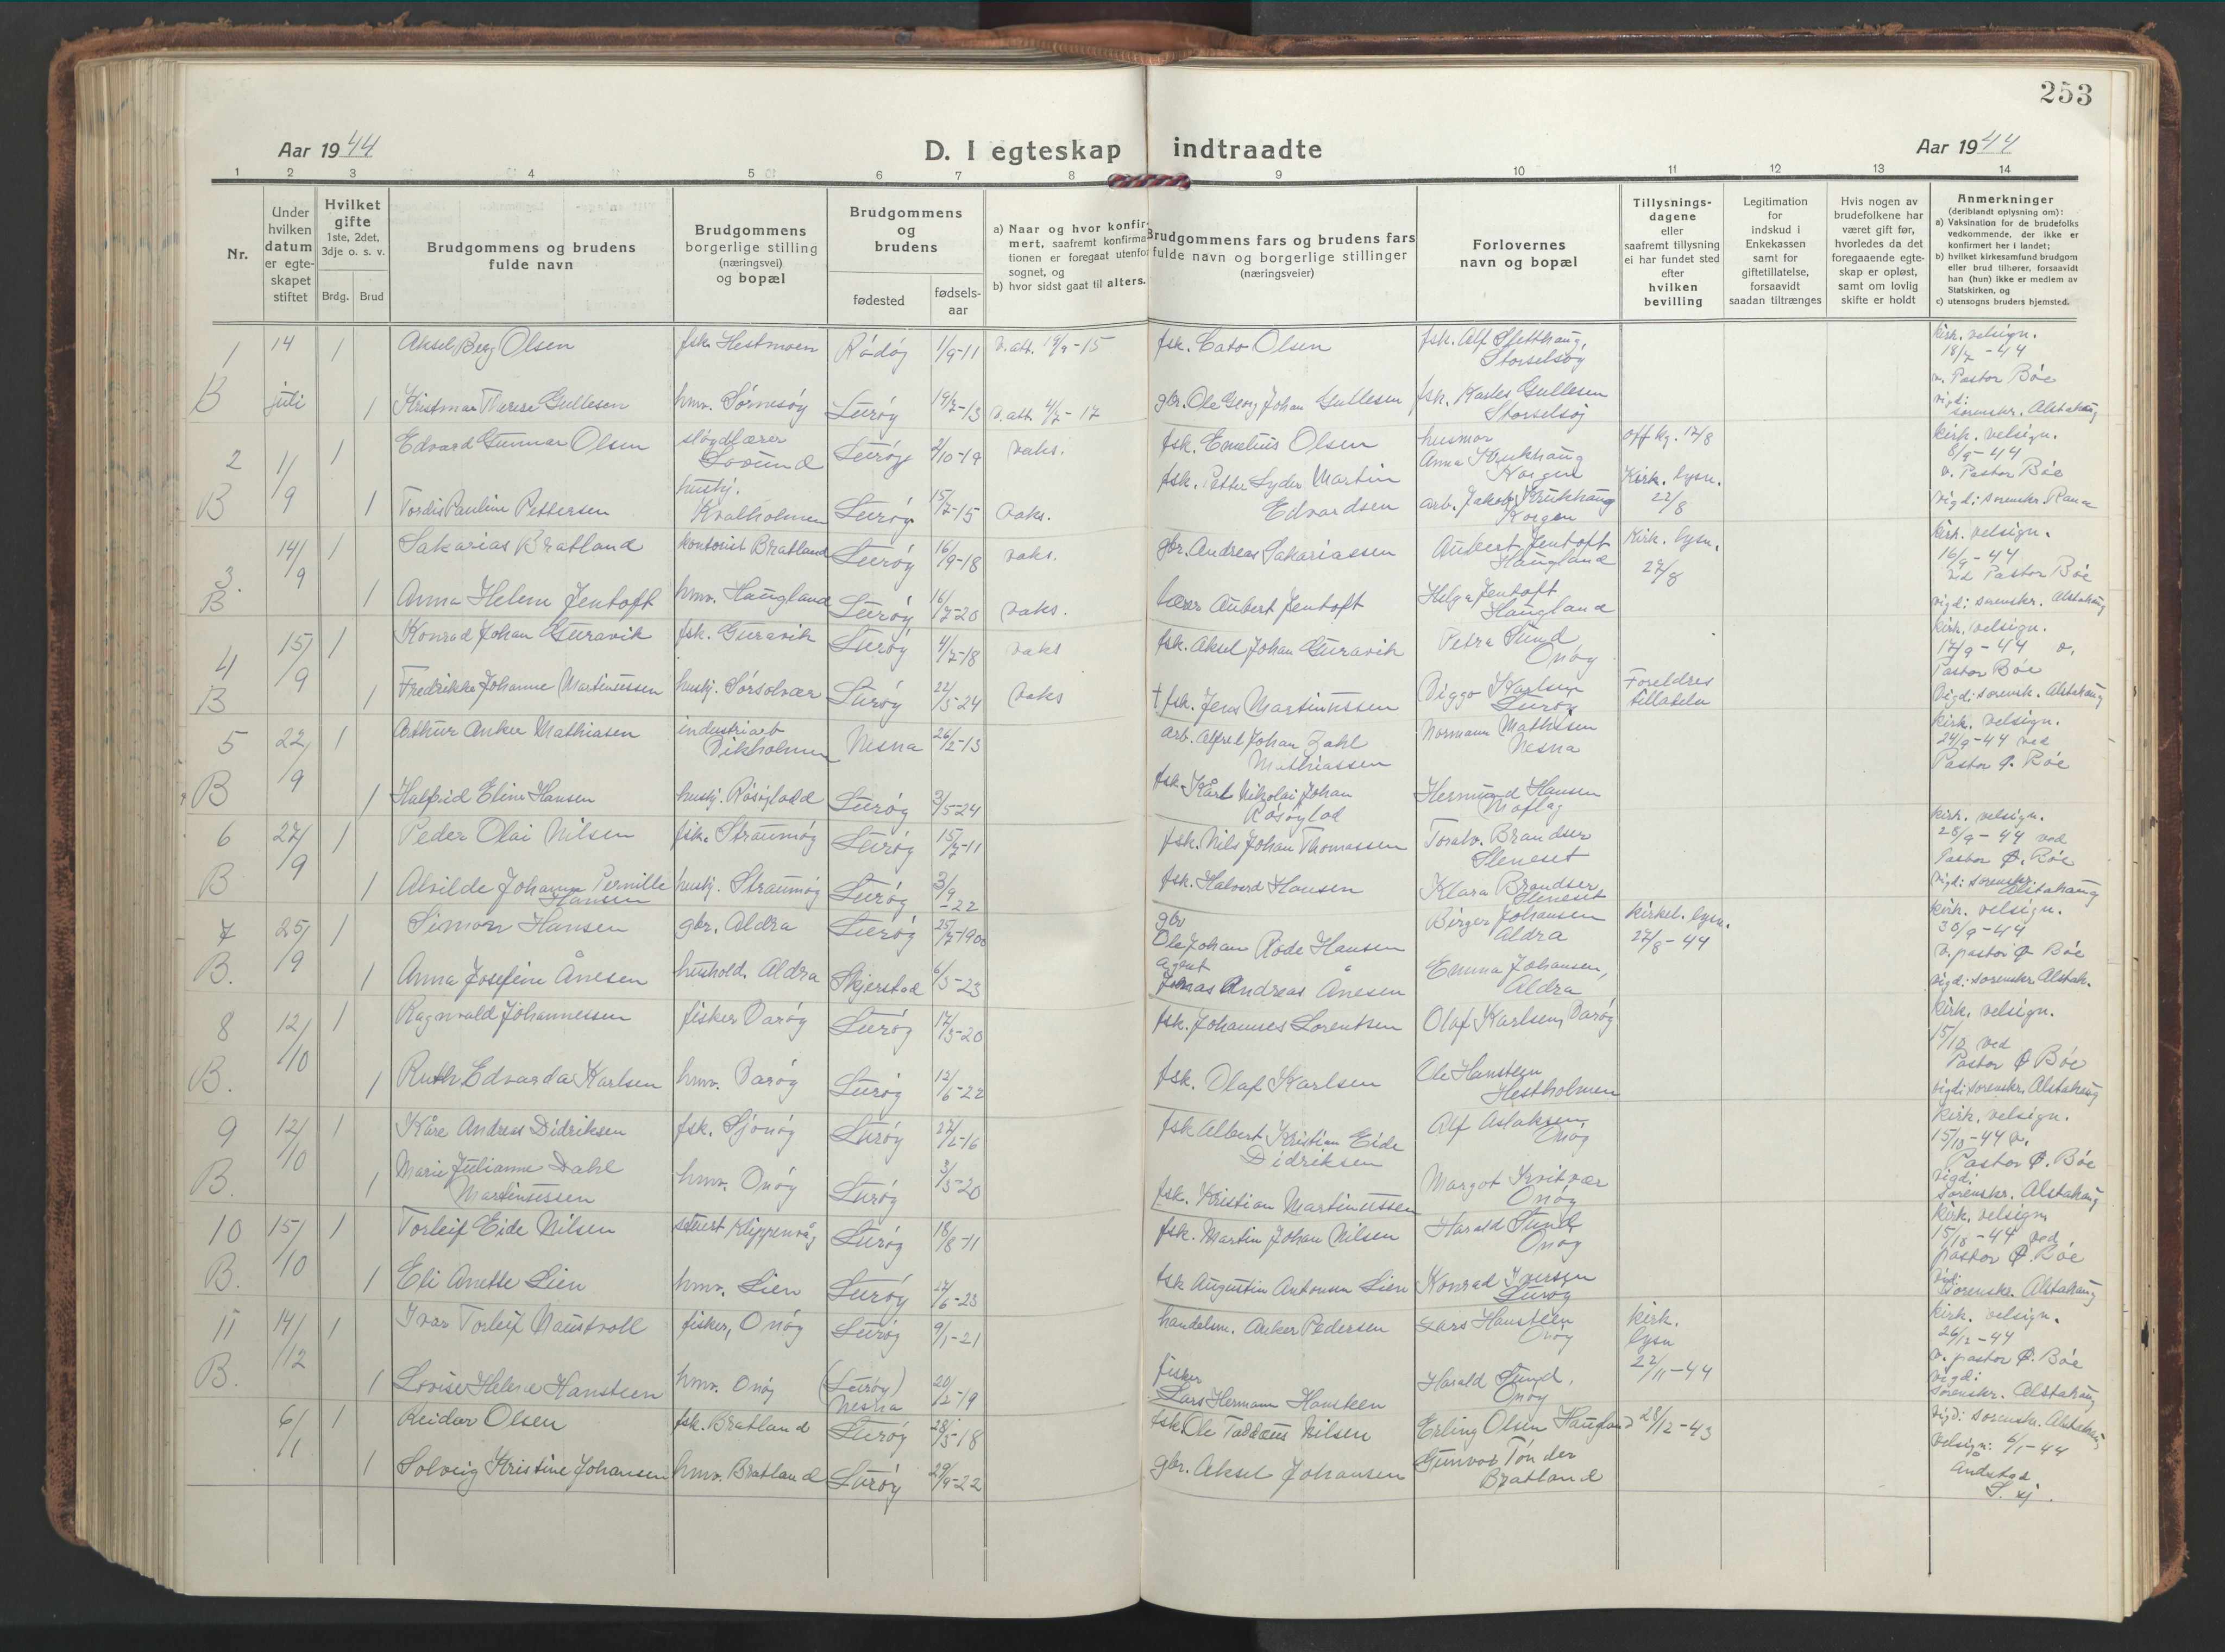 253
Aar 1944
D. I egteskap indtraadte
Aar 1944
1 2 3 4 5 6 7 8 9 10 11 12 13 14
Nr.
Under hvilken datum er egteskapet stiftet
Hvilket gifte 1ste, 2det, 3dje o. s. v.
Brdg. Brud
Brudgommens og brudens fulde navn
Brudgommens borgerlige stilling (næringsvei) og bopæl
Brudgommens og brudens
fødested
fødsels-aar
a) Naar og hvor konfirmert, saafremt konfirmationen er foregaat utenfor sognet, og
b) hvor sidst gaat til alters.
Brudgommens fars og brudens fars fulde navn og borgerlige stillinger (næringsveier)
Forlovernes navn og bopæl
Tillysnings-dagene eller saafremt tillysning ei har fundet sted efter hvilken bevilling
Legitimation for indskud i Enkekassen samt for giftetillatelse, forsaavidt saadan tiltrænges
Hvis nogen av brudefolkene har været gift før, hvorledes da det foregaaende egteskap er opløst, samt om lovlig skifte er holdt
Anmerkninger (deriblandt oplysning om):
a) Vaksination for de brudefolks vedkommende, der ikke er konfirmert her i landet;
b) hvilket kirkesamfund brudgom eller brud tilhører, forsaavidt han (hun) ikke er medlem av Statskirken, og
c) utensogns bruders hjemsted.
1 14 1 Aksel Berg Olsen fsk. Hestmoen Rødøy 1/9-11 fsk. Cato Olsen fsk. Alf Storselsøy kirk. velsign. 18/7-44 v. Pastor Bøe
B juli 1 Therese Gullesen hmv. Sørnesøy Lurøy 19/7-13 v.att. 4/7-17 gbr. Ole Georg Johan Gullesen fsk. Gullesen Storselsøy vigd: sorenskr. Alstahaug
2 1/9 1 Edvard Gunnar Olsen sløydlærer Lovund Lurøy 2/10-19 vaks. fsk. Emelius Olsen husmor Anna Krukhaug Korgen off kg. 17/8 kirk. velsign. 8/9-44 v. Pastor Bøe
B 1 Tordis Pauline Pettersen hushj. Kvalholmen Lurøy 15/7-15 vaks. fsk. Petter Lyder Martin Edvardsen arb. Jakob Krukhaug Korgen Kirk. lysn. 22/8 vigd: sorenskr. Rana
3. 14/9 1 Sakarias Bratland kontorist Bratland Lurøy 16/9-18 vaks. gbr. Andreas Sakariassen Aubert Jentoft Haugland Kirk. lysn. 27/8 kirk. velsign. 16/9-44 ved Pastor Bøe
B 1 Anna Helene Jentoft hmv. Haugland Lurøy 16/7-20 vaks. lærer Aubert Jentoft Helga Jentoft Haugland vigd: sorenskr. Alstahaug
4 15/9 1 Konrad Johan Guravik fsk. Guravik Lurøy 4/7-18 vaks fsk. Aksel Johan Guravik Petra Sund Onøy kirk. velsign. 17/9-44 v. Pastor Bøe
B 1 Fredrikke Johanne Martinussen hushj. Sørsolvær Lurøy 22/5-24 vaks † fsk. Jens Martinussen Viggo Karlsen Lurøy Foreldres tillatelse Vigd: sorensk. Alstahaug
5 22/9 1 Arthur Anker Mathiasen industriarb Vikholmen Nesna 26/2-13 arb. Alfred Johan Zahl Mathiassen Normann Mathisen Nesna kirk. velsign. 24/9-44 ved Pastor Ø. Bøe
B 1 Halfrid Eline Hansen hushj. Røsøylodd Lurøy 3/5-24 fsk. Kåre Nikolai Johan Røsøylod Hermund Hansen
6 27/9 1 Peder Olai Nilsen fsk. Straumøy Lurøy 15/7-11 fsk. Nils Johan Thomassen Toralv. Brandser Sleneset kirk. velsign. 28/9-44 ved Pastor Ø. Bøe
B 1 Alvilde Johanna Pernille Hansen hushj. Straumøy Lurøy 3/9-22 fsk. Halvard Hansen Klara Brandser Sleneset vigd: sorenskr. Alstahaug
7 25/9 1 Simon Hansen gbr. Aldra Lurøy 25/7-1900 gbr Ole Johan Rode Hansen Birger Johansen Aldra kirkel. lysn. 27/8-44 kirk. velsign. 30/9-44 v. pastor Ø Bøe
B. 1 Anna Josefine Ånesen hushold. Aldra Skjerstad 6/3-23 agent Jonas Andreas Ånesen Emma Johansen, Aldra vigd: sorenskr. Alstah.
8 12/10 1 Ragnvald Johannessen fisker Varøy Lurøy 17/3-20 fsk. Johannes Lorentsen Olaf Karlsen, Varøy kirk. velsign. 15/10 ved Pastor Ø Bøe
B. 1 Ruth Edvarda Karlsen hmv. Varøy Lurøy 12/6-22 fsk. Olaf Karlsen Ole Hansteen Hestholmen vigd: sorenskr. Alstahaug
9 12/10 1 Kåre Andreas Didriksen fsk. Sjonøy Lurøy 27/2-16 fsk Albert Kristian Eide Didriksen Alf Aslaksen Onøy kirk. velsign. 15/10-44 v. Pastor Ø. Bøe
B. 1 Marie Julianne Dahl Martinussen hmv. Onøy Lurøy 3/3-20 fsk. Kristian Martinussen Margot Kvitvær Onøy vigd: sorenskr. Alstahaug
10 15/10 1 Torleif Eide Nilsen stuert Klippenvåg Lurøy 18/8-11 fsk. Martin Johan Nilsen Harald Sund Onøy kirk. velsign 15/10-44 ved pastor Ø. Bøe
B. 1 Eli Anette Lien hmv. Lien Lurøy 27/6-23 fsk Augustin Antonsen Lien Konrad Iversen Lurøy vigd: sorenskr. Alstahaug
11 14/12 1 Ivar Torleif Naustvoll fisker, Onøy Lurøy 9/1-21 handelsm. Anker Pedersen Lars Hansteen Onøy kirk. lysn 22/11-44 kirk. velsign. 26/12-44 v. pastor Ø. Bøe
B. 1 Lovise Helene Hansteen hmv. Onøy (Lurøy) Nesna 20/2-19 fisker Lars Hermann Hansteen Harald Sund, Onøy vigd: sorenskr. Alstahaug
6/1 1 Reidar Olsen fsk. Bratland Lurøy 28/5-18 fsk Ole Taddæus Nilsen Erling Olsen Haugland 28/12-43 vigd: sorenskr. Alstahaug Velsign: 6/1-44
1 Solveig Kristine Johansen hmv. Bratland Lurøy 29/9-22 gbr. Aksel Johansen Gunvor Tønder Bratland